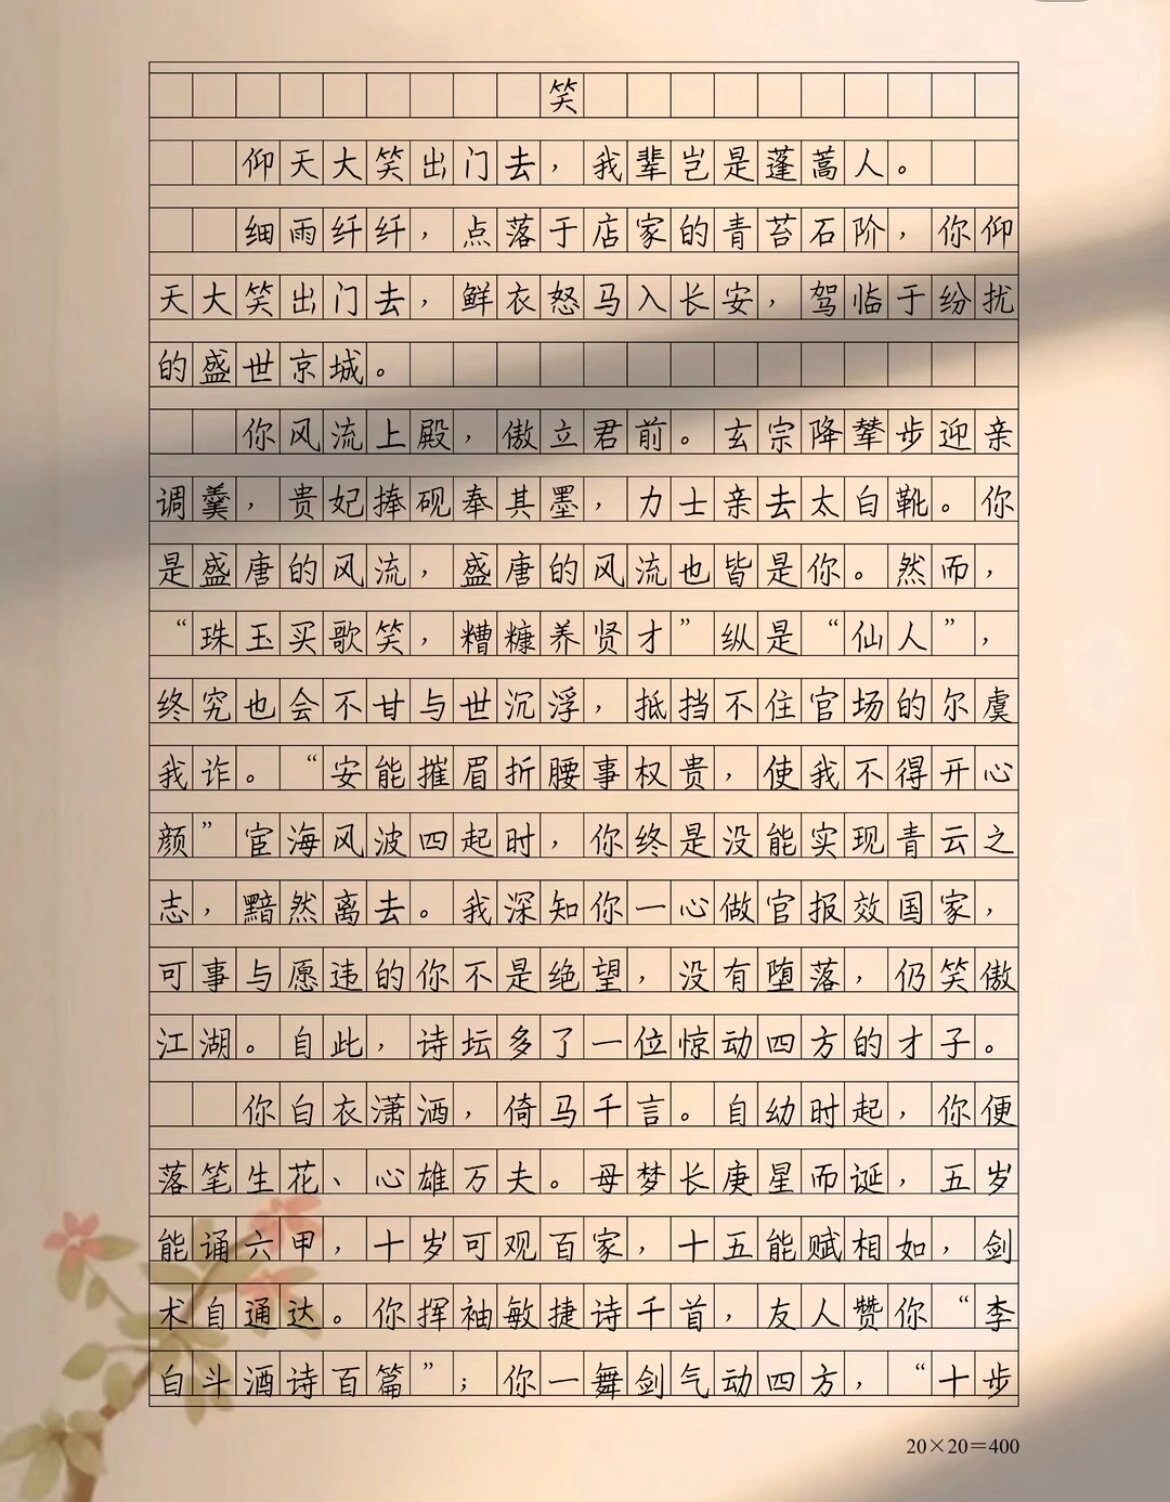 笑
仰天大笑出门去，我辈岂是蓬蒿人。
细雨纤纤，点落于店家的青苔石阶，你仰
天大笑出门去，鲜衣怒马入长安，驾临于纷扰
的盛世京城。
你风流上殿，傲立君前。玄宗降辇步迎亲
调羹，贵妃捧砚奉其墨，力士亲去太白靴。你
是盛唐的风流，盛唐的风流也皆是你。然而，
“珠玉买歌笑，糟糠养贤才”纵是“仙人”，
终究也会不甘与世沉浮，抵挡不住官场的尔虞
我诈。“安能摧眉折腰事权贵，使我不得开心
颜”宦海风波四起时，你终是没能实现青云之
志，黯然离去。我深知你一心做官报效国家，
可事与愿违的你不是绝望，没有堕落，仍笑傲
江湖。自此，诗坛多了一位惊动四方的才子。
你白衣潇洒，倚马千言。自幼时起，你便
落笔生花、心雄万夫。母梦长庚星而诞，五岁
能诵六甲，十岁可观百家，十五能赋相如，剑
术自通达。你挥袖敏捷诗千首，友人赞你“李
白斗酒诗百篇”；你一舞剑气动四方，“十步
20×20=400